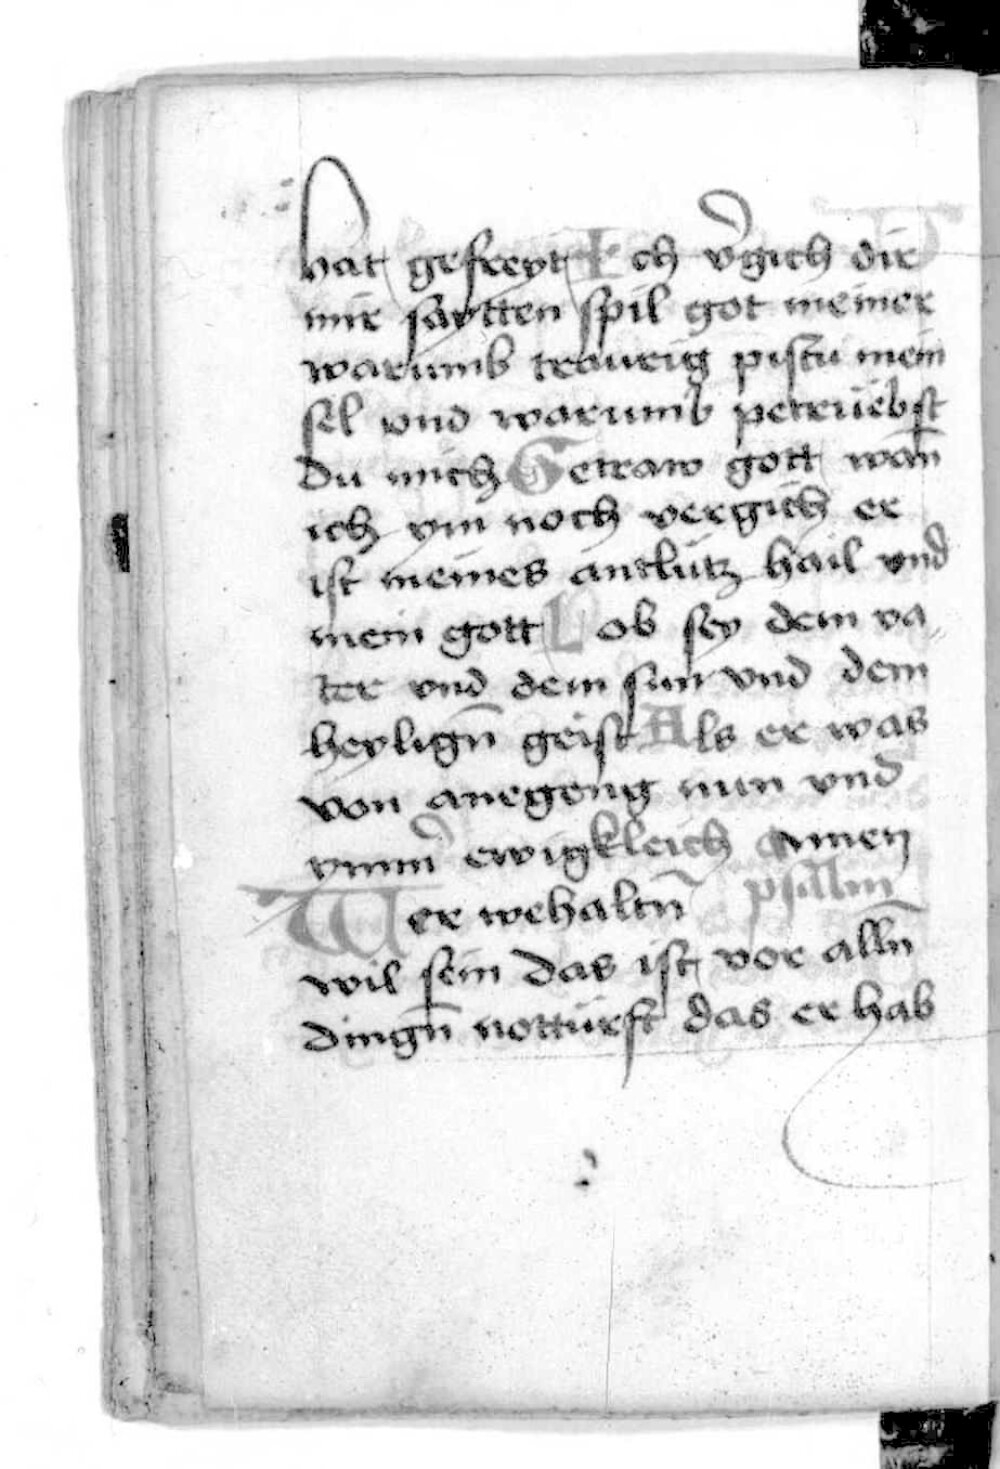 hat gefreyt Ich v̉gich dir
mir säytten spil got meiner
warumb traurig pistu mein
sel vnd warumb petrüebst
du mich Getraw gott wan̄
ich ym noch vergich er
ist meines antlütz hail vnd
mein gott Lob sey dem va
ter vnd dem sun vnd dem
heylign̄ geist Als er was
von anegeng nun vnd
ymm̉ ewigkleich Amen
Wer wehaltn̄ psallm
wil sein das ist vor alln̄
dingn̄ nottürft das er hab